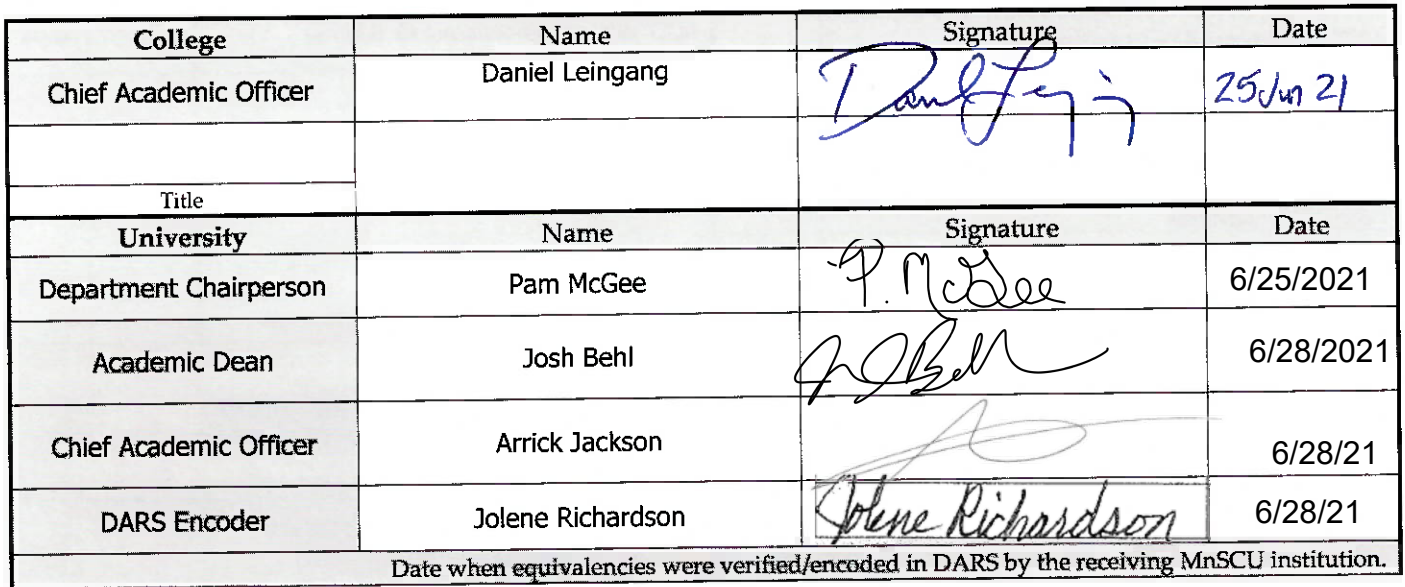 College Name Signature Date
Chief Academic Officer Daniel Leingang 25 Jun 21
Title
University Name Signature Date
Department Chairperson Pam McGee P. McGee 6/25/2021
Academic Dean Josh Behl 6/28/2021
Chief Academic Officer Arrick Jackson 6/28/21
DARS Encoder Jolene Richardson Jolene Richardson 6/28/21
Date when equivalencies were verified/encoded in DARS by the receiving MnSCU institution.